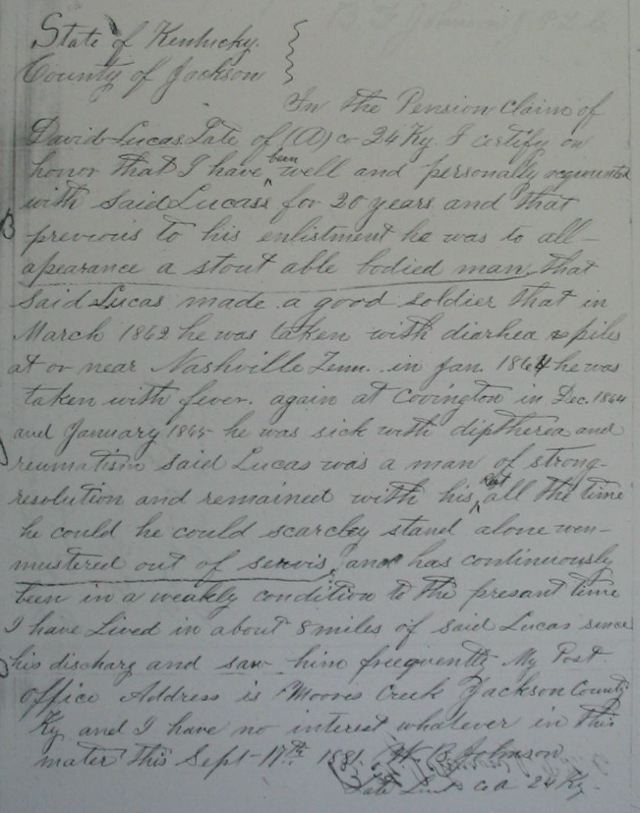 State of Kentucky.
County of Jackson
In the Pension Claim of
David Lucas Late of (A) co 24 Ky. I certify on
honor that I have been well and personally acquainted
with Said Lucas for 20 years and that
previous to his enlistment he was to all-
apearance a stout able bodied man, that
Said Lucas made a good soldier that in
March 1862 he was taken with diarhea & piles
at or near Nashville Tenn. in Jan. 1864 he was
taken with fever. again at Covington in Dec. 1864
and January 1865 he was sick with diptherea and
reumatism said Lucas was a man of strong-
resolution and remained with his all the time
he could he could scarcley stand alone wen-
mustered out of servis, and has continuously
been in a weakly condition to the presant time
I have Lived in about 8 miles of said Lucas since
his discharg and saw him freequently My Post
office Address is Moores Creek Jackson County
Ky and I have no interest whatever in this
mater this Sept-17th 1881. B. Johnson
Late co A 24 Ky.